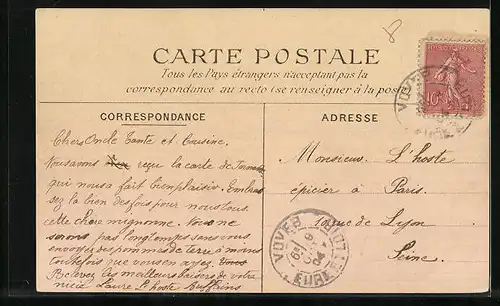 CARTE POSTALE
Tous les Pays étrangers n'acceptent pas la
correspondance au recto (se renseigner à la poste)
CORRESPONDANCE
ADRESSE
Chers Oncle Tante et Cousine.
Nous avons reçu la carte de
qui nous a fait bien plaisir.
bien des fois pour nous tous
cette chère mignonne. Vous ne
serons pas longtemps sans vous
envoyer des pommes de terre à moins
toutefois que vous en ayez.
Recevez les meilleurs baisers de votre
nièce Laure L'hoste
Monsieur L'hoste
épicier à Paris.
de Lyon
Seine.
10
VOVES
VOVES
EURE